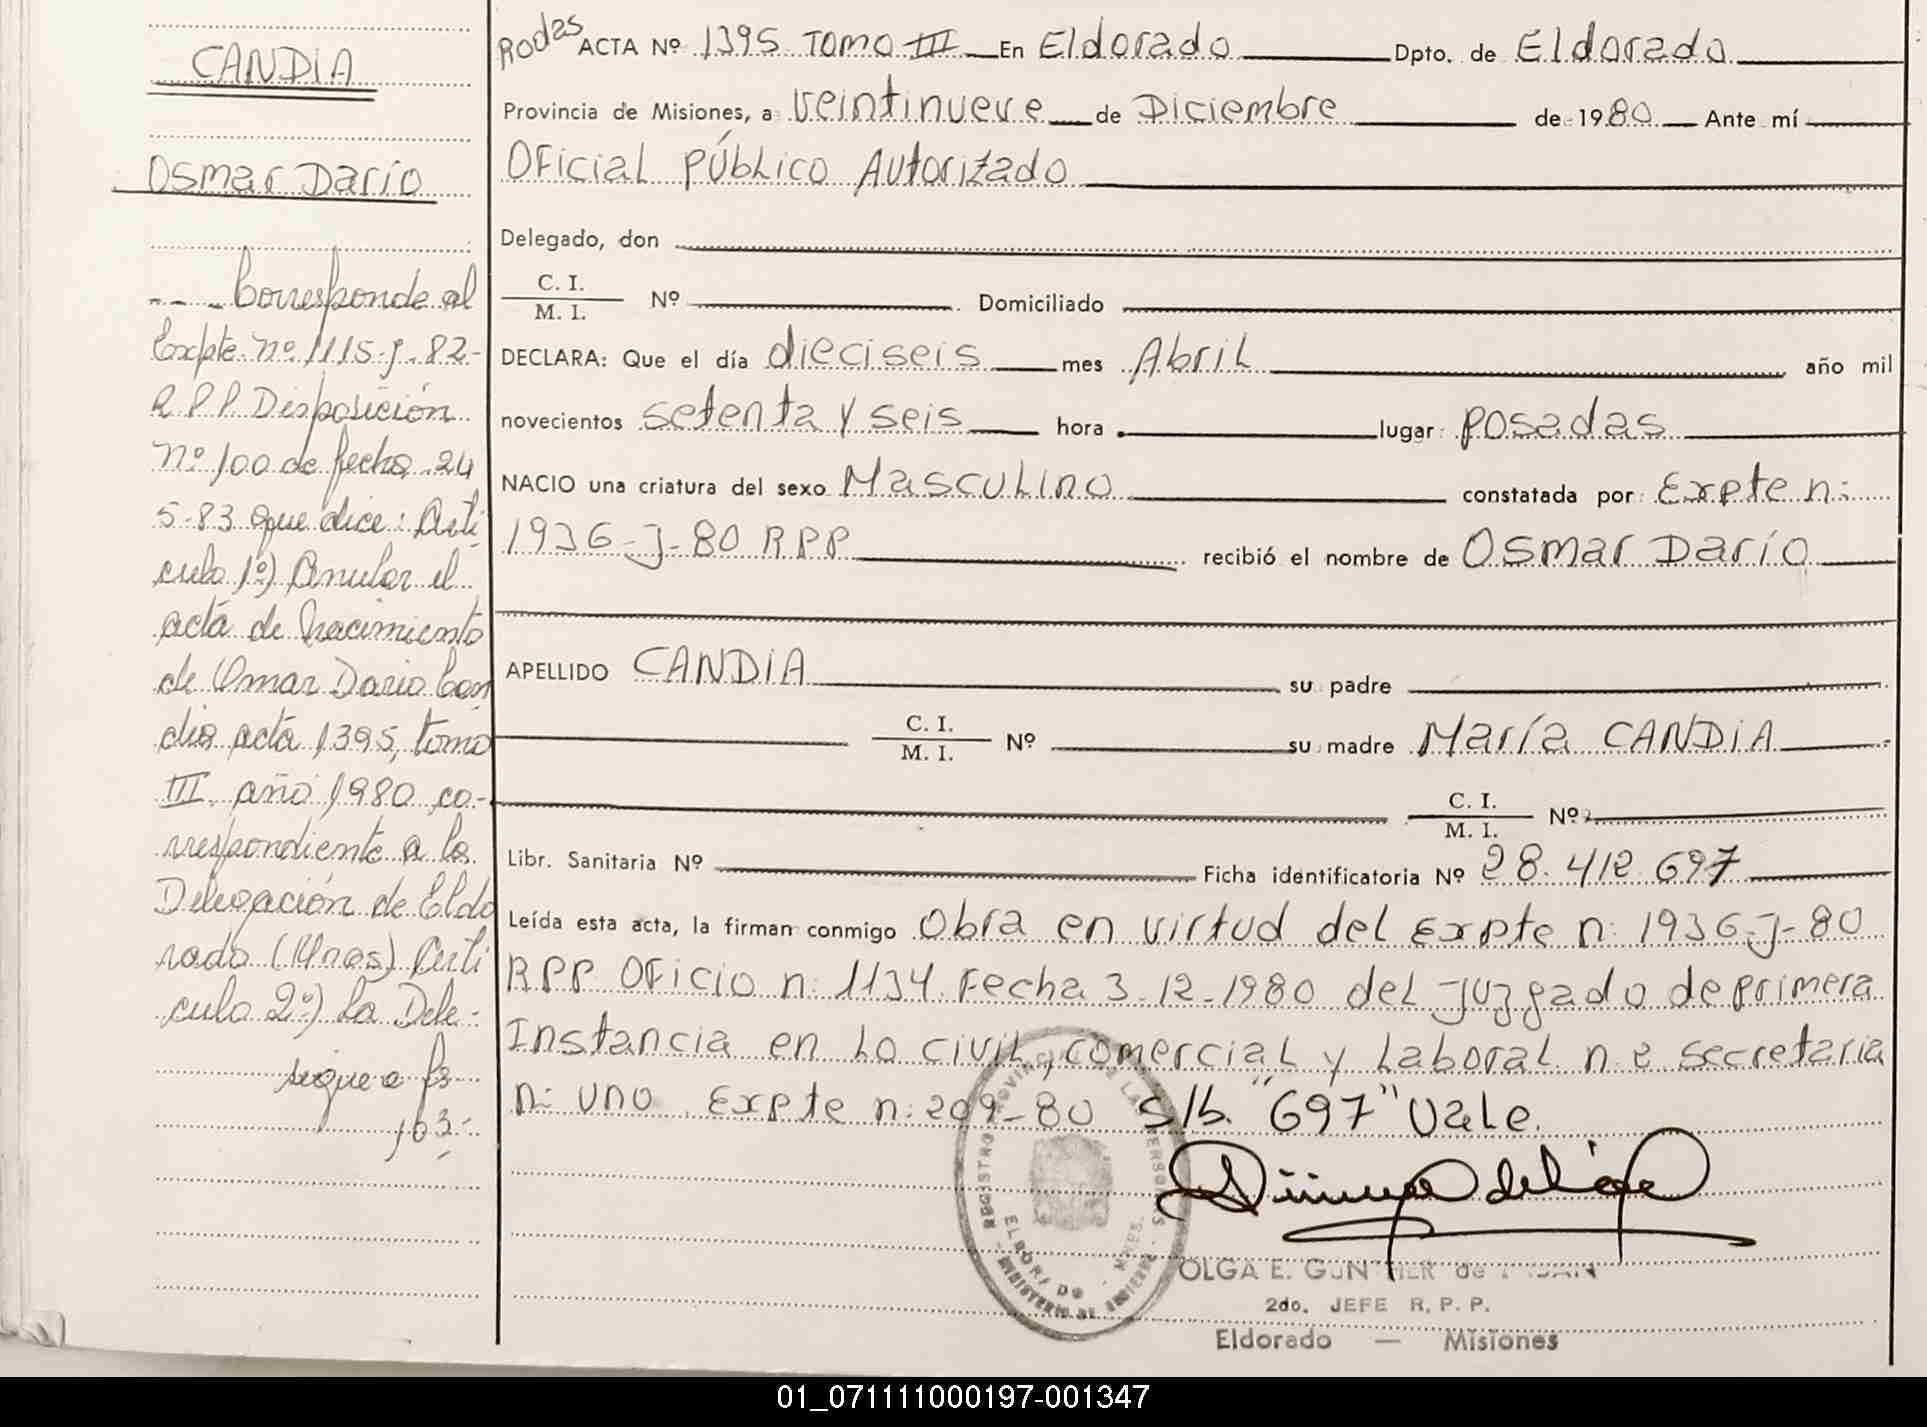 CANDIA
Osmar Darío
Corresponde al
Expte. nº 1115-J-82-
R.P.P. Disposición
nº 100 de fecha 24
5-83 que dice: Artí
culo 1º) Anular el
acta de nacimiento
de Omar Dario Can
dia acta 1395, tomo
III, año 1980 co-
rrespondiente a la
Delegación de Eldo
rado (Mnes) Artí
culo 2º) La Dele-
sigue a fs
103-
Rodas ACTA Nº 1395 Tomo III En Eldorado Dpto. de Eldorado
Provincia de Misiones, a veintinueve de Diciembre de 1980 Ante mí
Oficial Público Autorizado
Delegado, don
C. I.
M. I. Nº Domiciliado
DECLARA: Que el día dieciseis mes Abril año mil
novecientos setenta y seis hora lugar Posadas
NACIO una criatura del sexo Masculino constatada por Expte n:
1936-J-80 RPP recibió el nombre de Osmar Darío
APELLIDO CANDIA su padre
C. I.
M. I. Nº su madre María CANDIA
C. I.
M. I. Nº
Libr. Sanitaria Nº Ficha identificatoria Nº 28.412.697
Leída esta acta, la firman conmigo Obra en virtud del Expte n: 1936-J-80
RPP Oficio n: 1134 Fecha 3-12-1980 del Juzgado de primera
Instancia en lo civil, comercial y Laboral n 2 secretaria
n: uno Expte n: 209-80 s/b. "697" Vale.
REGISTRO PROVINCIAL DE LAS PERSONAS
ELDORADO - MNES.
MINISTERIO DE GOBIERNO
OLGA E. GUNTHER de
2do. JEFE R. P. P.
Eldorado — Misiones
01_071111000197-001347